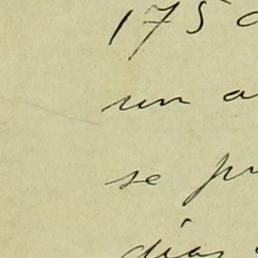 175
un a
se pr
dias